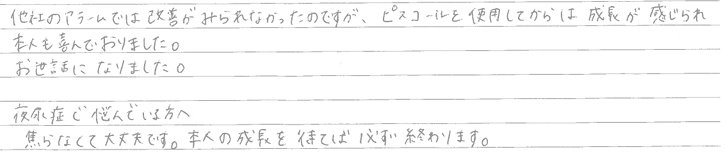 他社のアラームでは改善がみられなかったのですが、ピスコールを使用してからは成長が感じられ
本人も喜んでおりました。
お世話になりました。
夜尿症で悩んでいる方へ
焦らなくて大丈夫です。本人の成長を待てば必ず終わります。